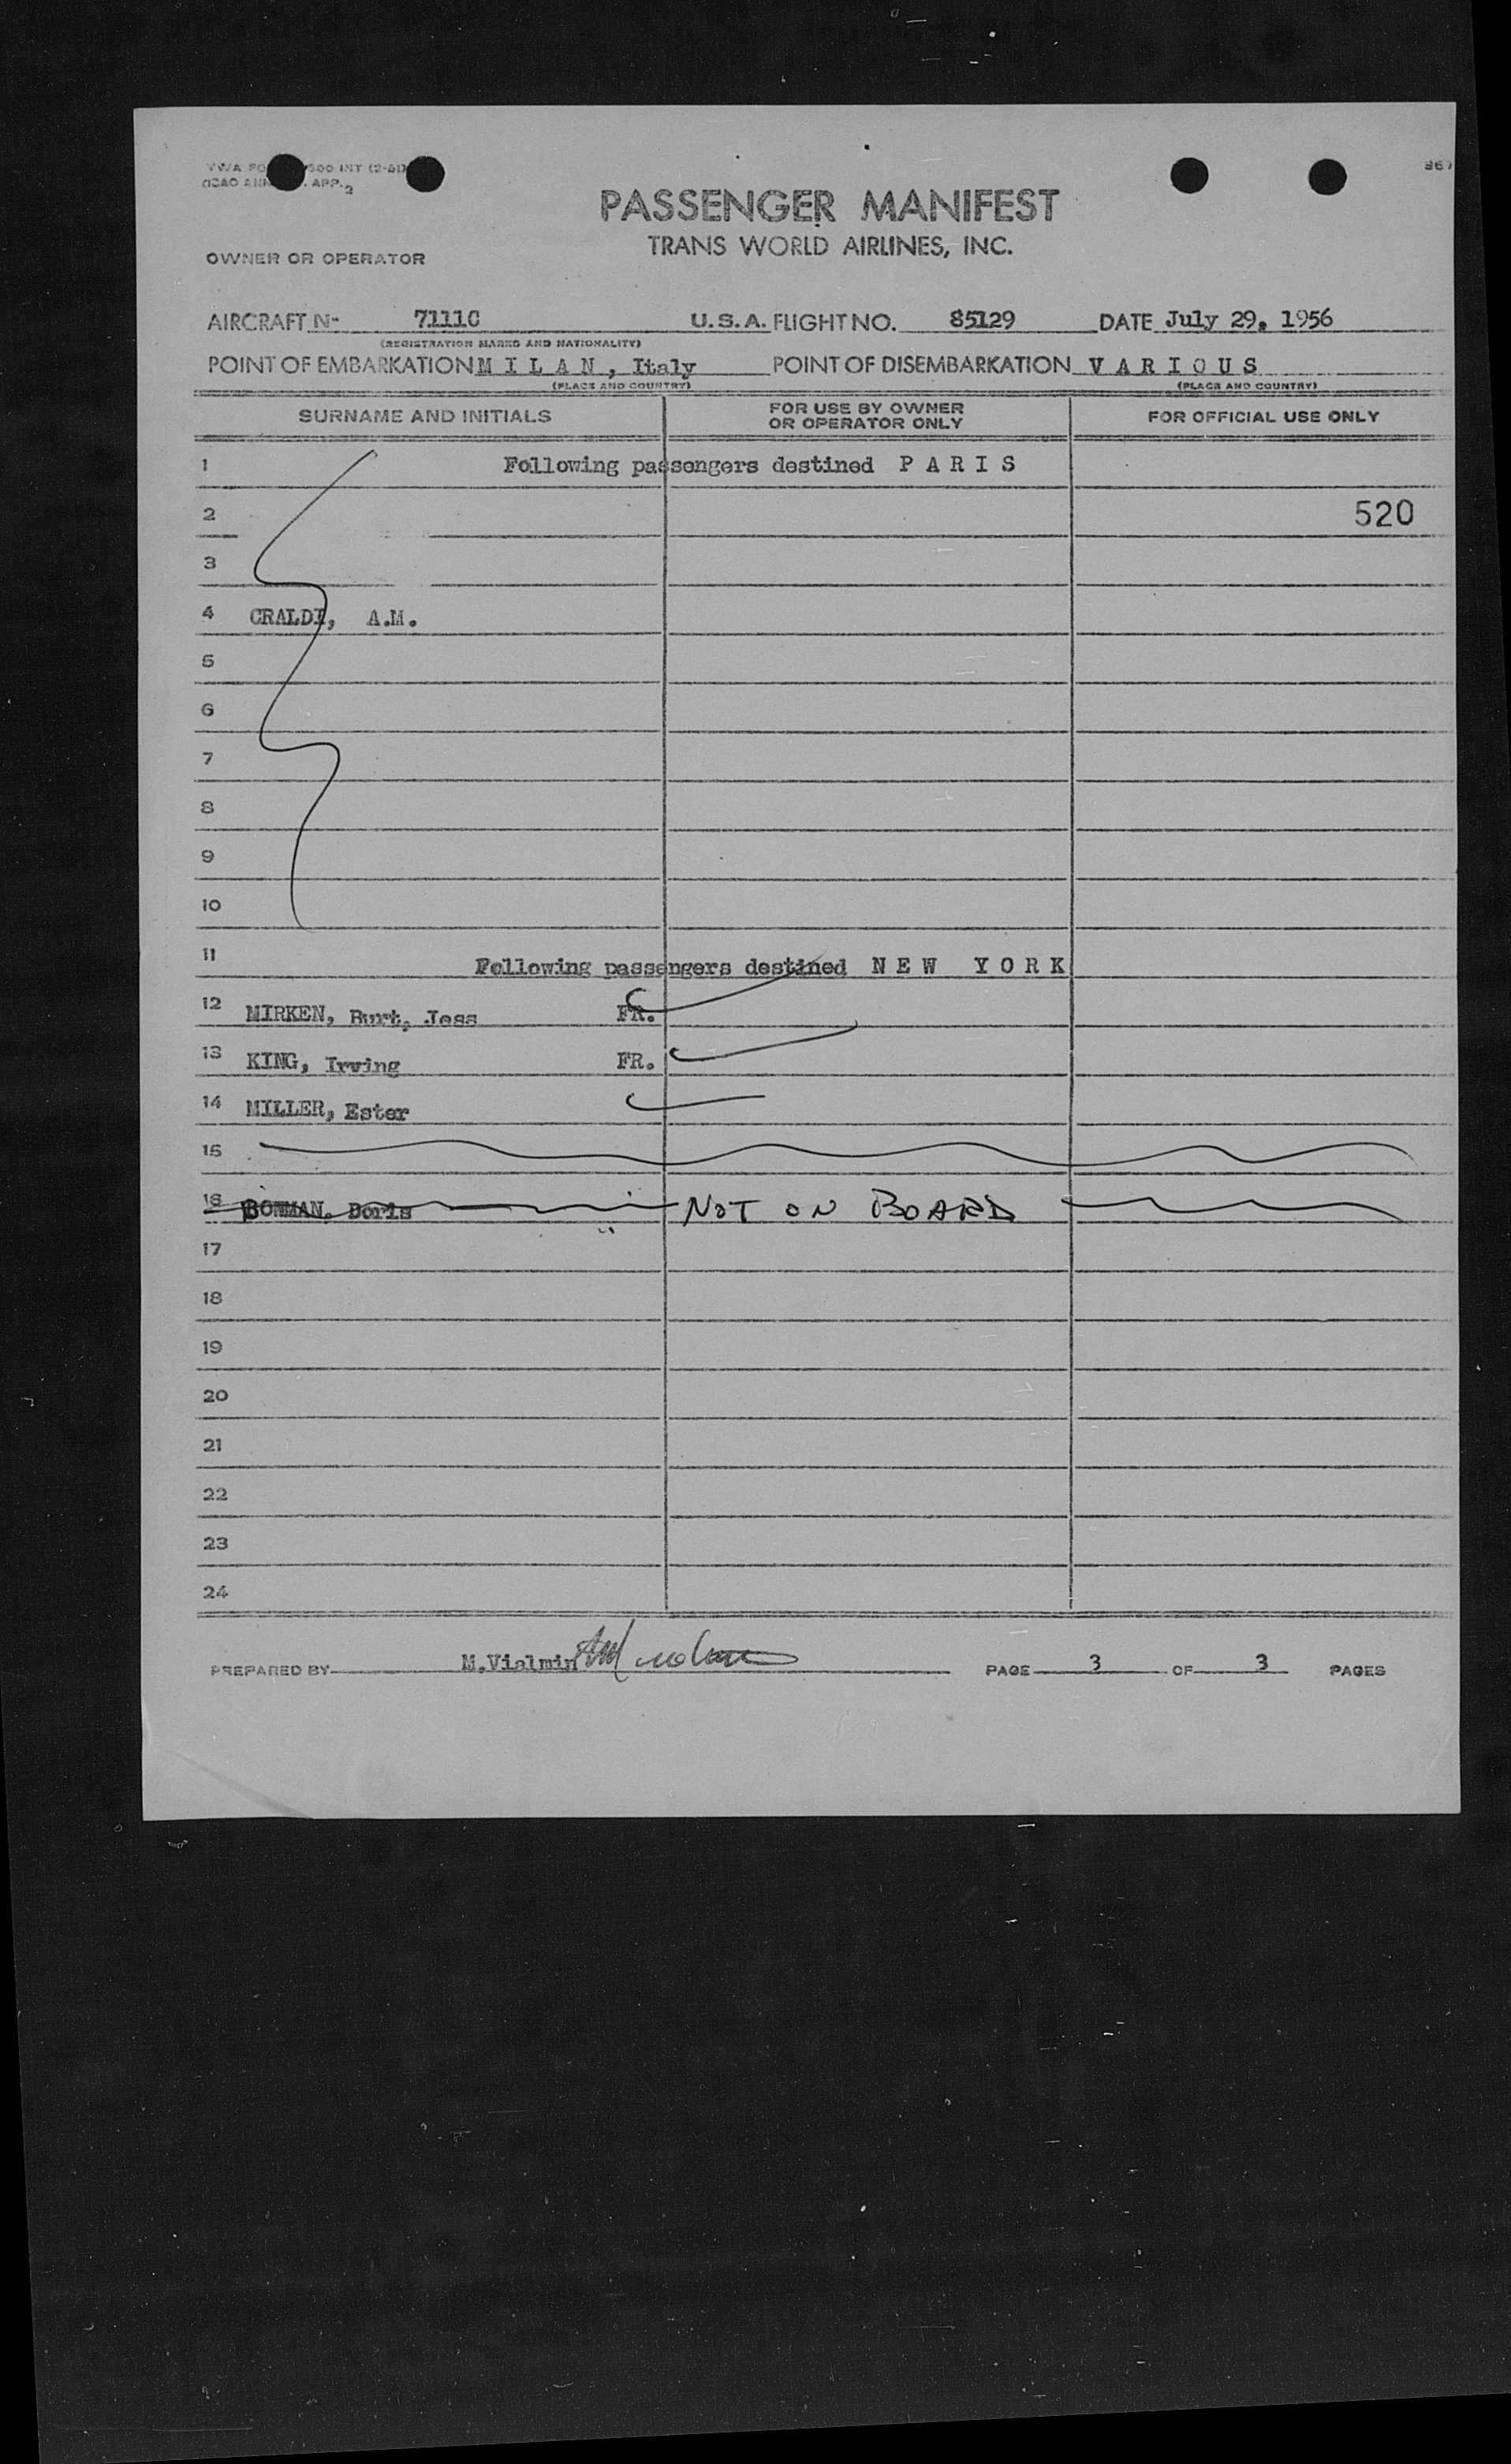 TWA FO 500 INT (2-51)
ICAO ANN APP. 2
967
PASSENGER MANIFEST
TRANS WORLD AIRLINES, INC.
OWNER OR OPERATOR
AIRCRAFT N- 7111C U.S.A. FLIGHT NO. 85129 DATE July 29, 1956
(REGISTRATION MARKS AND NATIONALITY)
POINT OF EMBARKATION M I L A N , Italy POINT OF DISEMBARKATION V A R I O U S
(PLACE AND COUNTRY) (PLACE AND COUNTRY)
SURNAME AND INITIALS FOR USE BY OWNER OR OPERATOR ONLY FOR OFFICIAL USE ONLY
1 Following passengers destined P A R I S
2 520
3
4 CRALDI, A.M.
5
6
7
8
9
10
11 Following passengers destined N E W Y O R K
12 MIRKEN, Burt, Jess FR.
13 KING, Irving FR.
14 MILLER, Ester
15
16 BOWMAN, Doris NOT ON BOARD
17
18
19
20
21
22
23
24
PREPARED BY M.Vialmin PAGE 3 OF 3 PAGES